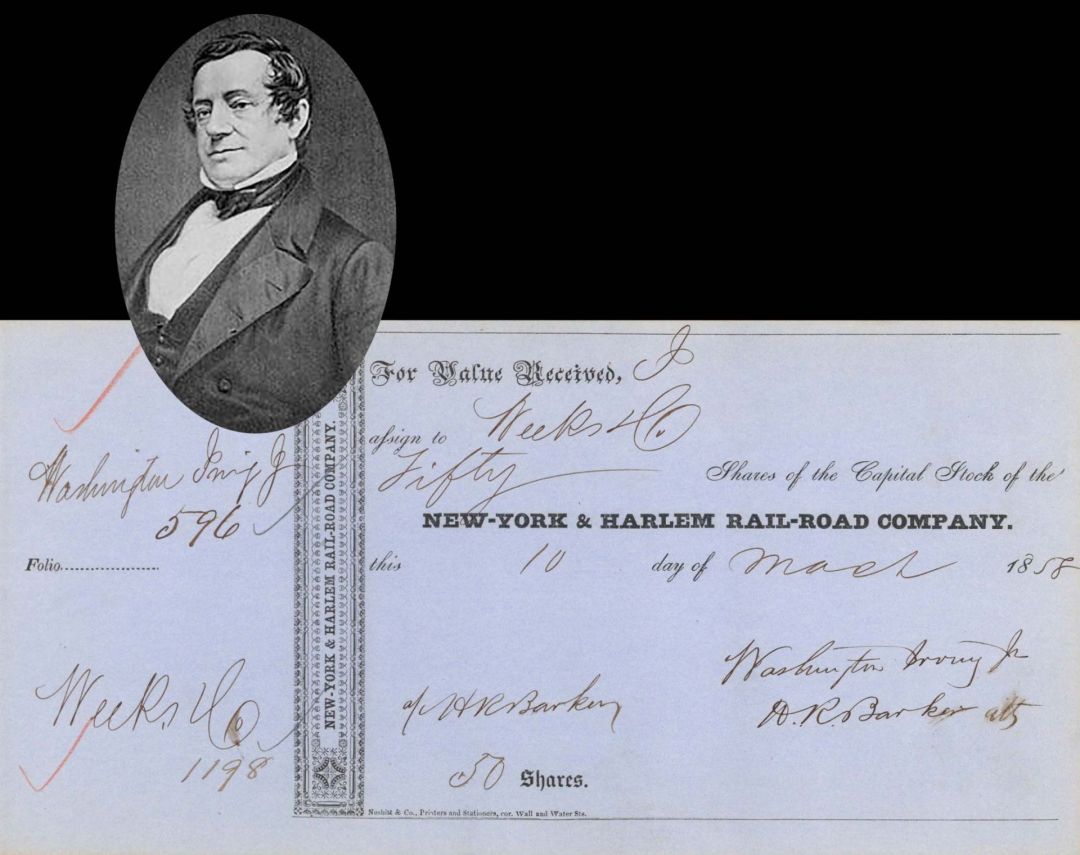 Washington Irving Jr
596
Folio
Weeks & Co
1198
NEW-YORK & HARLEM RAIL-ROAD COMPANY.
NEW-YORK & HARLEM RAIL-ROAD COMPANY.
For Value Received, I
assign to Weeks & Co.
Fifty Shares of the Capital Stock of the
NEW-YORK & HARLEM RAIL-ROAD COMPANY.
this 10 day of March 1858
Washington Irving Jr
H R Barker
A. R. Barker atty
50 Shares.
Nesbitt & Co., Printers and Stationers, cor. Wall and Water Sts.